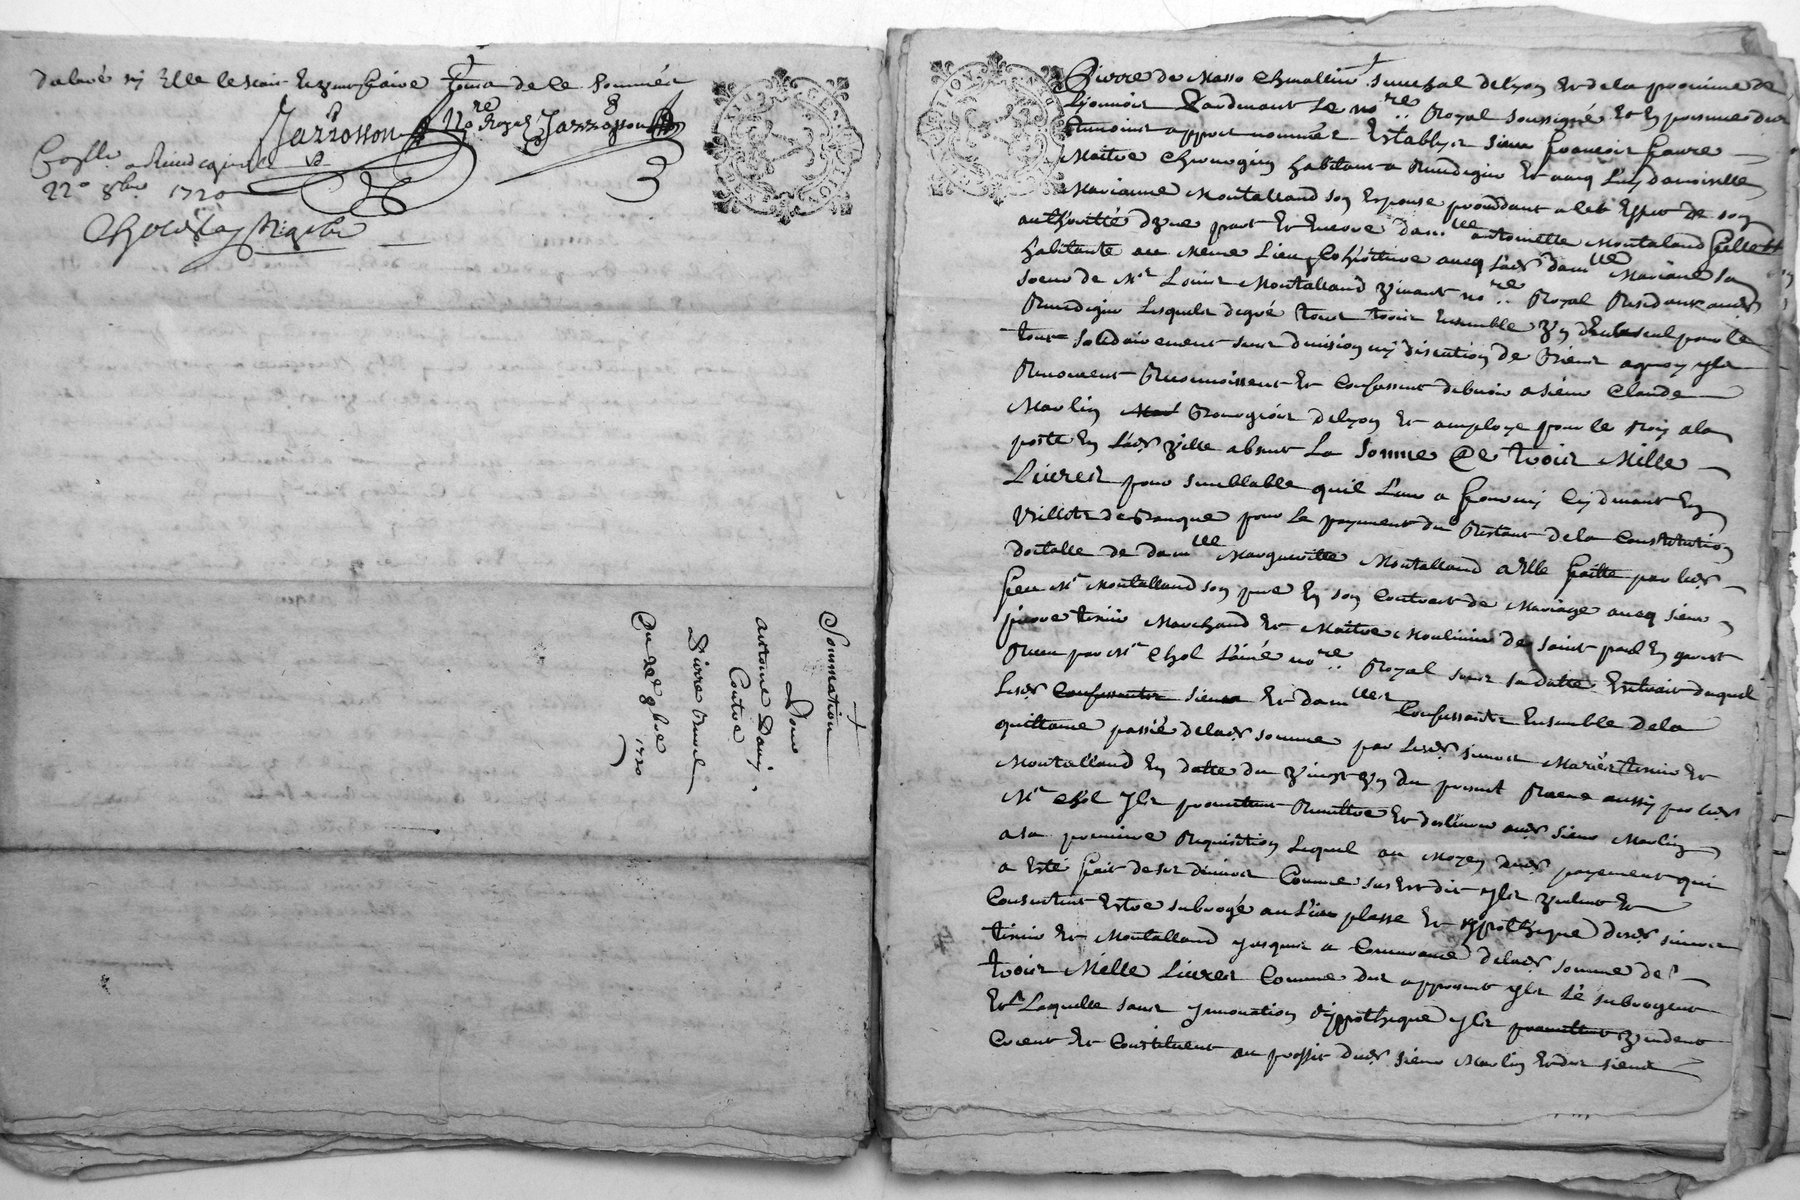 de ce sommée
Jarrosson no.re Royal Jarrosson
22e 8bre 1720
Sommation
Pour
antoine Dauj
Contre
Pierre
Du 22e 8bre 1720
Pierre de Masso Chevallier Seneschal de Lyon Et de la province de
Lyonnois Pardevant Le no.re Royal soussigné Et En presence des
temoins appres nommées Establys sieur françois faure
Maître Chirurgien habitant a Et avecq Luy damoiselle
Marianne Montalland son Espouse procedant a cet Effect de son
authorité d'une part Et Encore dam.lle antoinette Montaland fille
habitante au Meme Lieu Cohéritiere avecq Lad. dam.lle Mariane sa
soeur de Mr Louis Montalland vivant no.re Royal aud.
Lesquels de gré tous trois Ensemble un deux seul pour le
tout solidairement sans division ny discution de Biens a quoy yls
Renoncent Reconnoissent Et Confessent debvoir a sieur Claude
Marlin Bourgeois de Lyon Et employe pour le Roy a la
poste En Lad. Ville absent La somme de trois Mille
Livres pour semblable qu'il Leur a fourny Cy devant En
Billets de Banque pour Le payement du Restant de la Constitution
dotalle de dam.lle Margueritte Montalland a Elle faitte par led.
feu Mr Montalland son pere En son Contract de Mariage avecq sieur
pierre tixier Marchand Et Maître Moulinier de saint paul En
Receu par Mr Chol L'aîné no.re Royal sous sa datte Extrait duquel
Lesd. sieur Et dam.lles Confessantes Ensemble de la
quittance passée de lad. somme par Lesd. sieurs Mariés tixier Et
Montalland En datte du vingt un du present Receue aussy par led.
Mr Chol yls promettent Remettre Et deslivrer aud. sieur Marlin
a sa premiere Requisition Lequel au Moyen dud. payement qui
a Esté fait de ses deniers Comme sus Est dit yls veulent Et
Consentent Estre subrogé au Lieu plasse Et hypothéque desd. sieurs
tixier Et Montalland jusques a Concurance de lad. somme de
trois Mille Livres Comme des appresent yls Le subrogent
Laquelle sans ynnovation d'yppothéque yls vendent
Creent Et Constituent au proffit dud. sieur Marlin Et des siens